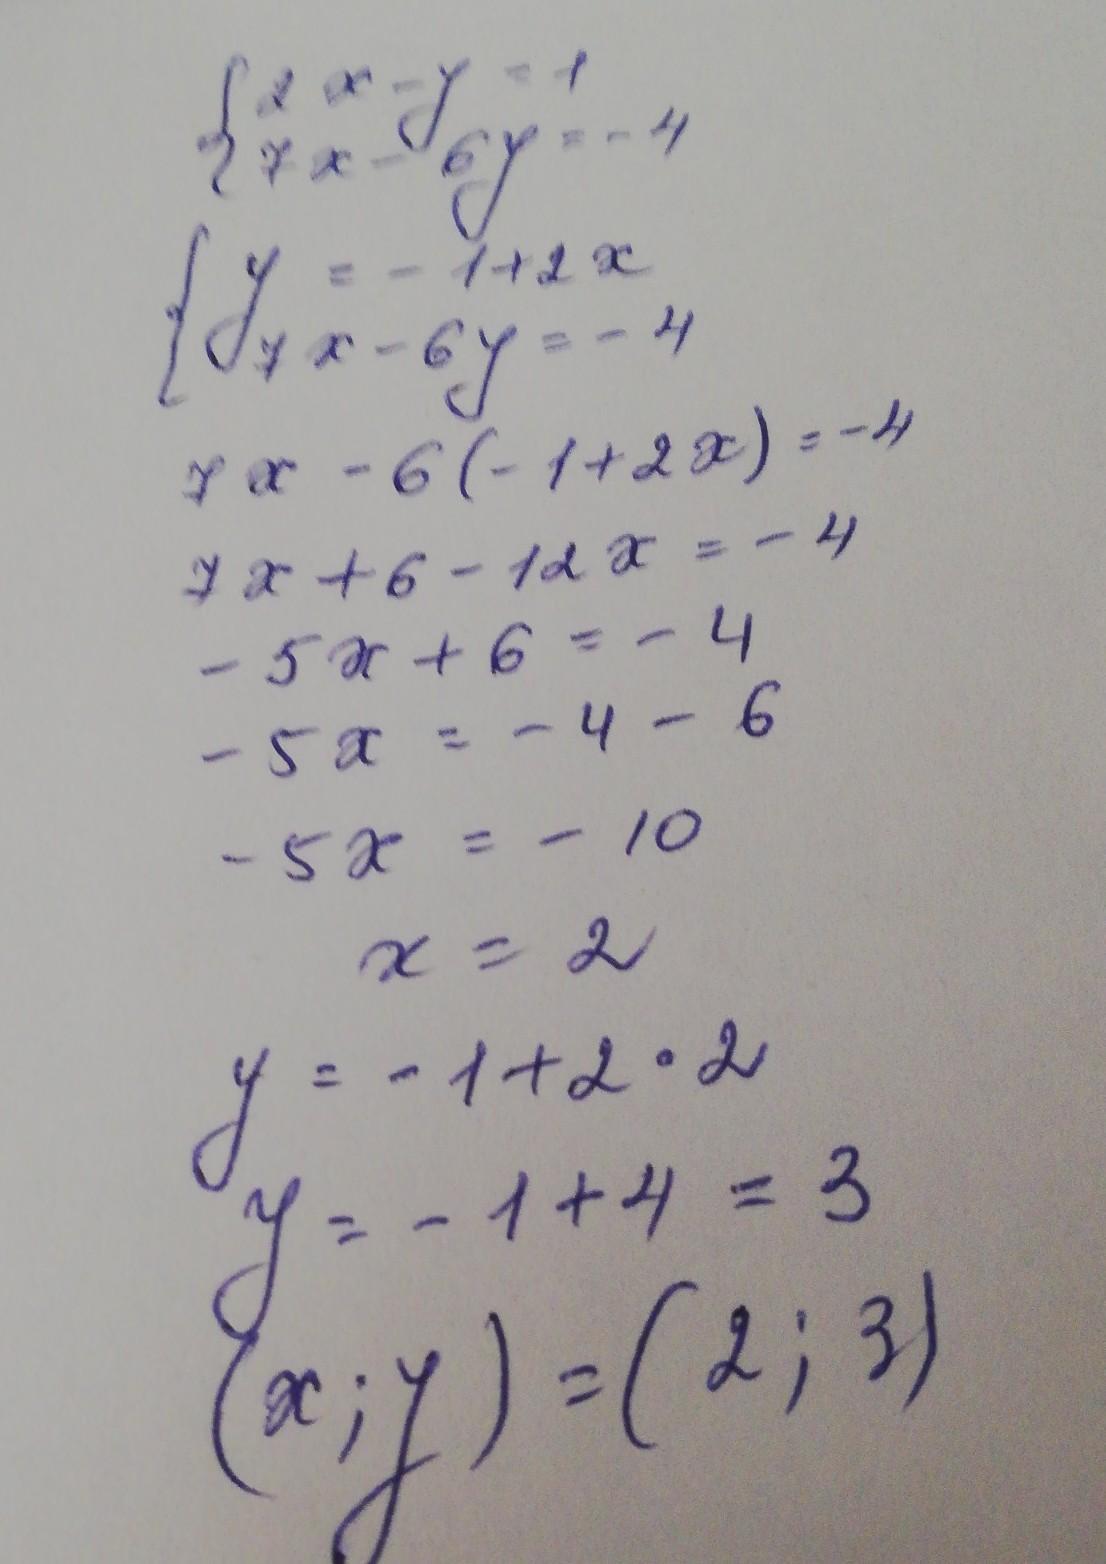 {2x-y=1
7x-6y=-4
{y=-1+2x
7x-6y=-4
7x-6(-1+2x)=-4
7x+6-12x=-4
-5x+6=-4
-5x=-4-6
-5x=-10
x=2
y=-1+2·2
y=-1+4=3
(x;y)=(2;3)